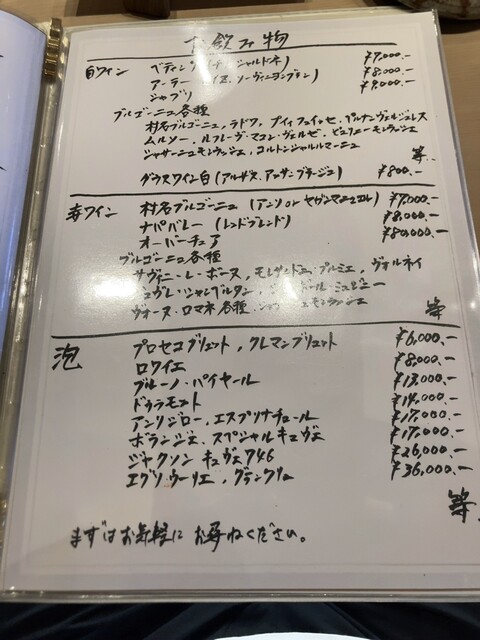 お飲み物
白ワイン ベディン シャルドネ) ¥7,000.-
アーラー ソーヴィニヨンブラン) ¥8,000.-
シャブリ ¥9,000.-
ブルゴーニュ各種
村名ブルゴーニュ, ラドワ, プイィフュイッセ, ペルナンヴェルジュレス
ムルソー, ルフレーヴ・マコン・ヴェルゼ, ピュリニーモンラッシェ
シャサーニュモンラッシェ, コルトンシャルルマーニュ
等
グラスワイン白 (アルザス, アッサンブラージュ) ¥800.-
赤ワイン 村名ブルゴーニュ (アンリ or セヴァンマニュエル) ¥7,000.-
ナパバレー (レッドブレンド) ¥8,000.-
オーバーチュア ¥80,000.-
ブルゴーニュ各種
サヴィニー・レ・ボーヌ, モレサンドニ・プルミエ, ヴォルネイ
ジュヴレ・シャンベルタン, ドール・ミュジニー
ヴォーヌ・ロマネ各種, モンラッシェ
等
泡 プロセコブリュット, クレマンブリュット ¥6,000.-
ロワイエ ¥8,000.-
ブルーノ・パイヤール ¥13,000.-
ドゥラモット ¥14,000.-
アンリジロー, エスプリナチュール ¥17,000.-
ボランジェ, スペシャルキュヴェ ¥17,000.-
ジャクソン キュヴェ746 ¥26,000.-
エグリ・ウーリエ, グランクリュ ¥36,000.-
等
まずはお気軽に お尋ねください。